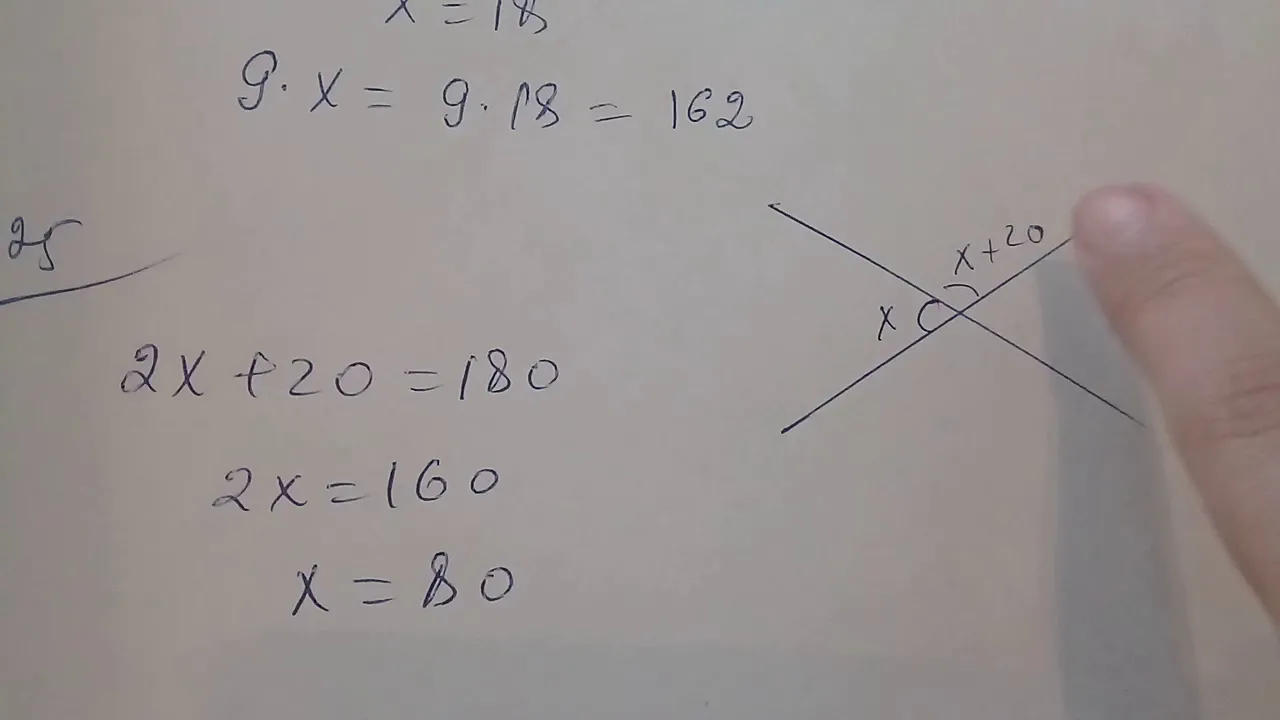 x = 18
9 · x = 9 · 18 = 162
25
x + 20
x
2x + 20 = 180
2x = 160
x = 80